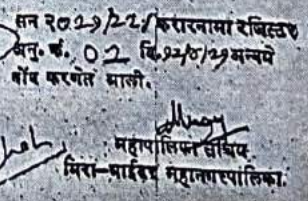 सन २०२१/२२/करारनामा रजिस्टर
अनु. क्र. 02 दि.१२/८/२१ अन्वये
नोंद करणेत आली.
महापालिका सचिव
मिरा-भाईंदर महानगरपालिका